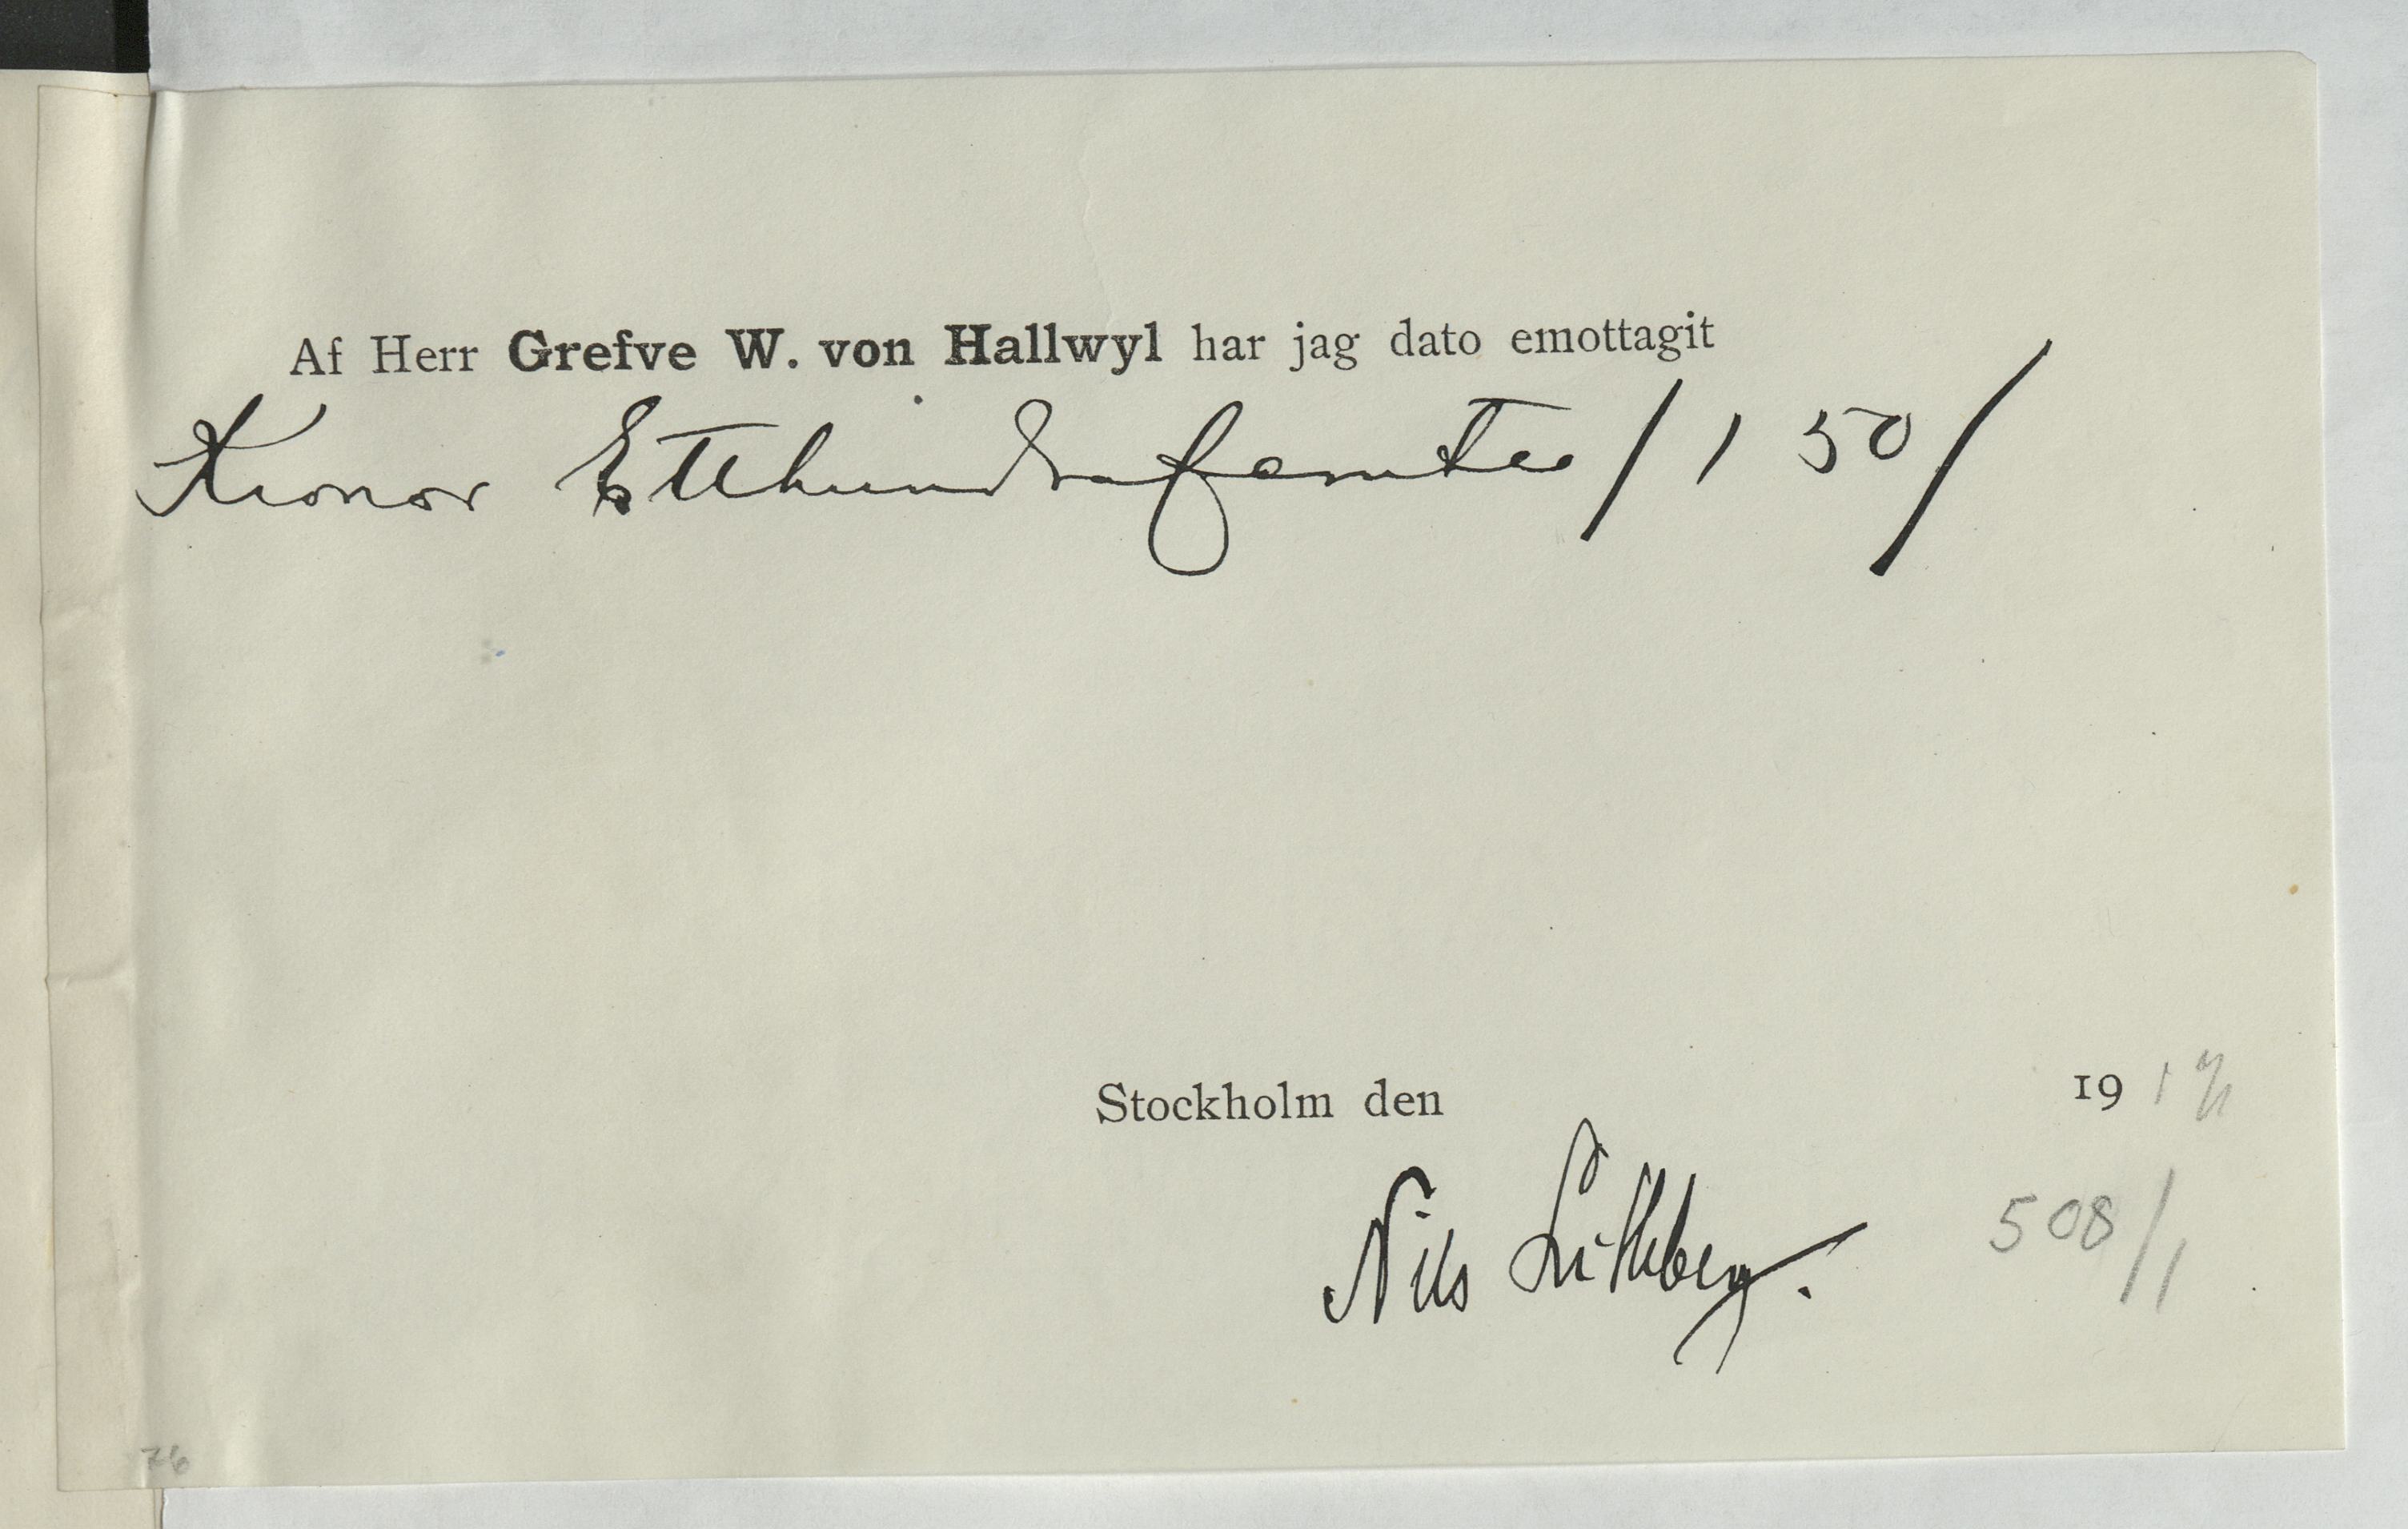 Af Herr Grefve W. von Hallwyl har jag dato emottagit
Kronor Etthundrafemtio / 150 /
Stockholm den 19 1
Nils Lithberg.
508/1
76